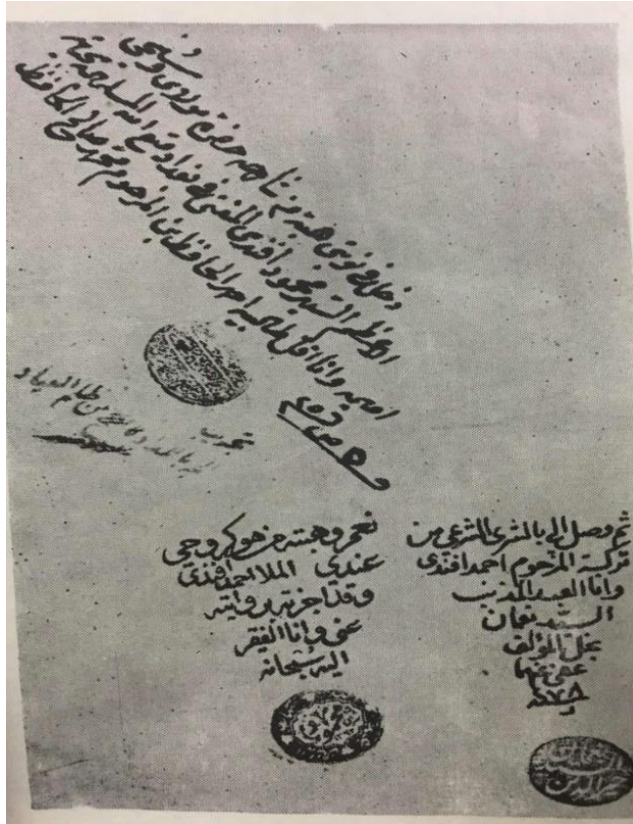 دخل في نوبتي هبة من جناب حضرة مولاي وشيخي
الاعظم السيد محمود افندي المفتي في بغداد متع الله المسلمين بحياته
امين وانا اقل طلبته احمد الحافظ ابن المرحوم محمد صالح الحافظ
نعم وهبته من هو كروحي
عندي الملا احمد افندي
وقد اجزته بروايته
عني وانا الفقير
اليه سبحانه
محمود
ثم وصل الي بالشرى الشرعي من
تركة المرحوم احمد افندي
وانا العبد المذنب
السيد نعمان
نجل المؤلف
عفي عنهما
خير الدين